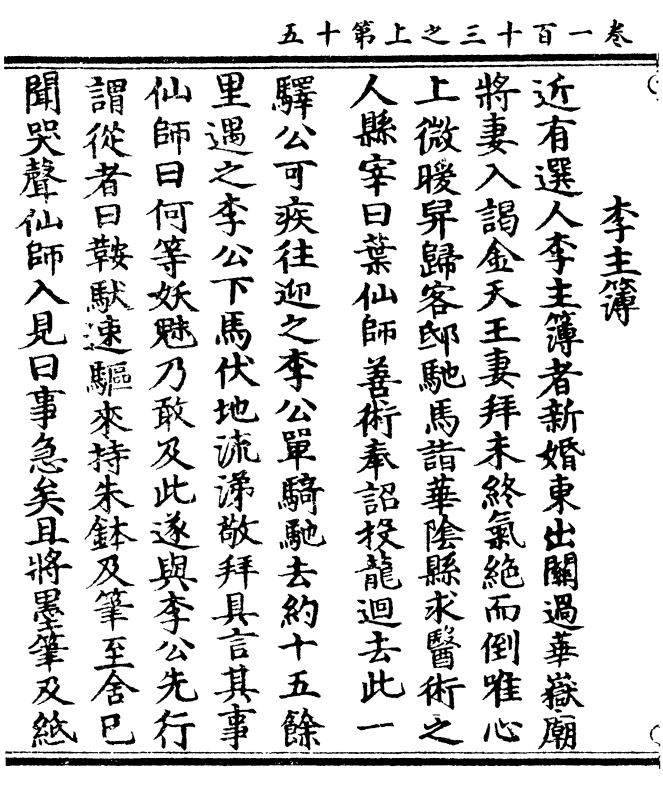 卷一百十三之上第十五
李主簿
近有選人李主簿者新婚東出關過華嶽廟
將妻入謁金天王妻拜未終氣絶而倒唯心
上微暖舁歸客邸馳馬詣華陰縣求醫術之
人縣宰曰葉仙師善術奉詔投龍迴去此一
驛公可疾往迎之李公單騎馳去約十五餘
里遇之李公下馬伏地流涕敬拜具言其事
仙師曰何等妖魅乃敢及此遂與李公先行
謂從者曰鞍馱速驅來持朱鉢及筆至舍已
聞哭聲仙師入見曰事急矣且將墨筆及紙